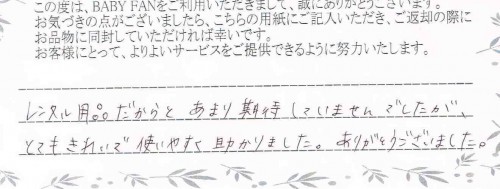 この度は、BABY FANをご利用いただきまして、誠にありがとうございます。
お気づきの点がございましたら、こちらの用紙にご記入いただき、ご返却の際に
お品物に同封していただければ幸いです。
お客様にとって、よりよいサービスをご提供できるように努力いたします。
レンタル用品だからと あまり期待していませんでしたが、
とてもきれいで 使いやすく 助かりました。ありがとうございました。